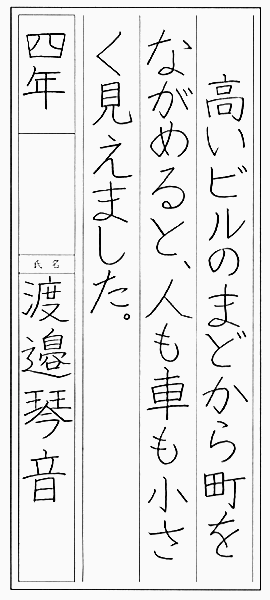 高いビルのまどから町を
ながめると、人も車も小さ
く見えました。
四年
氏名
渡邉琴音